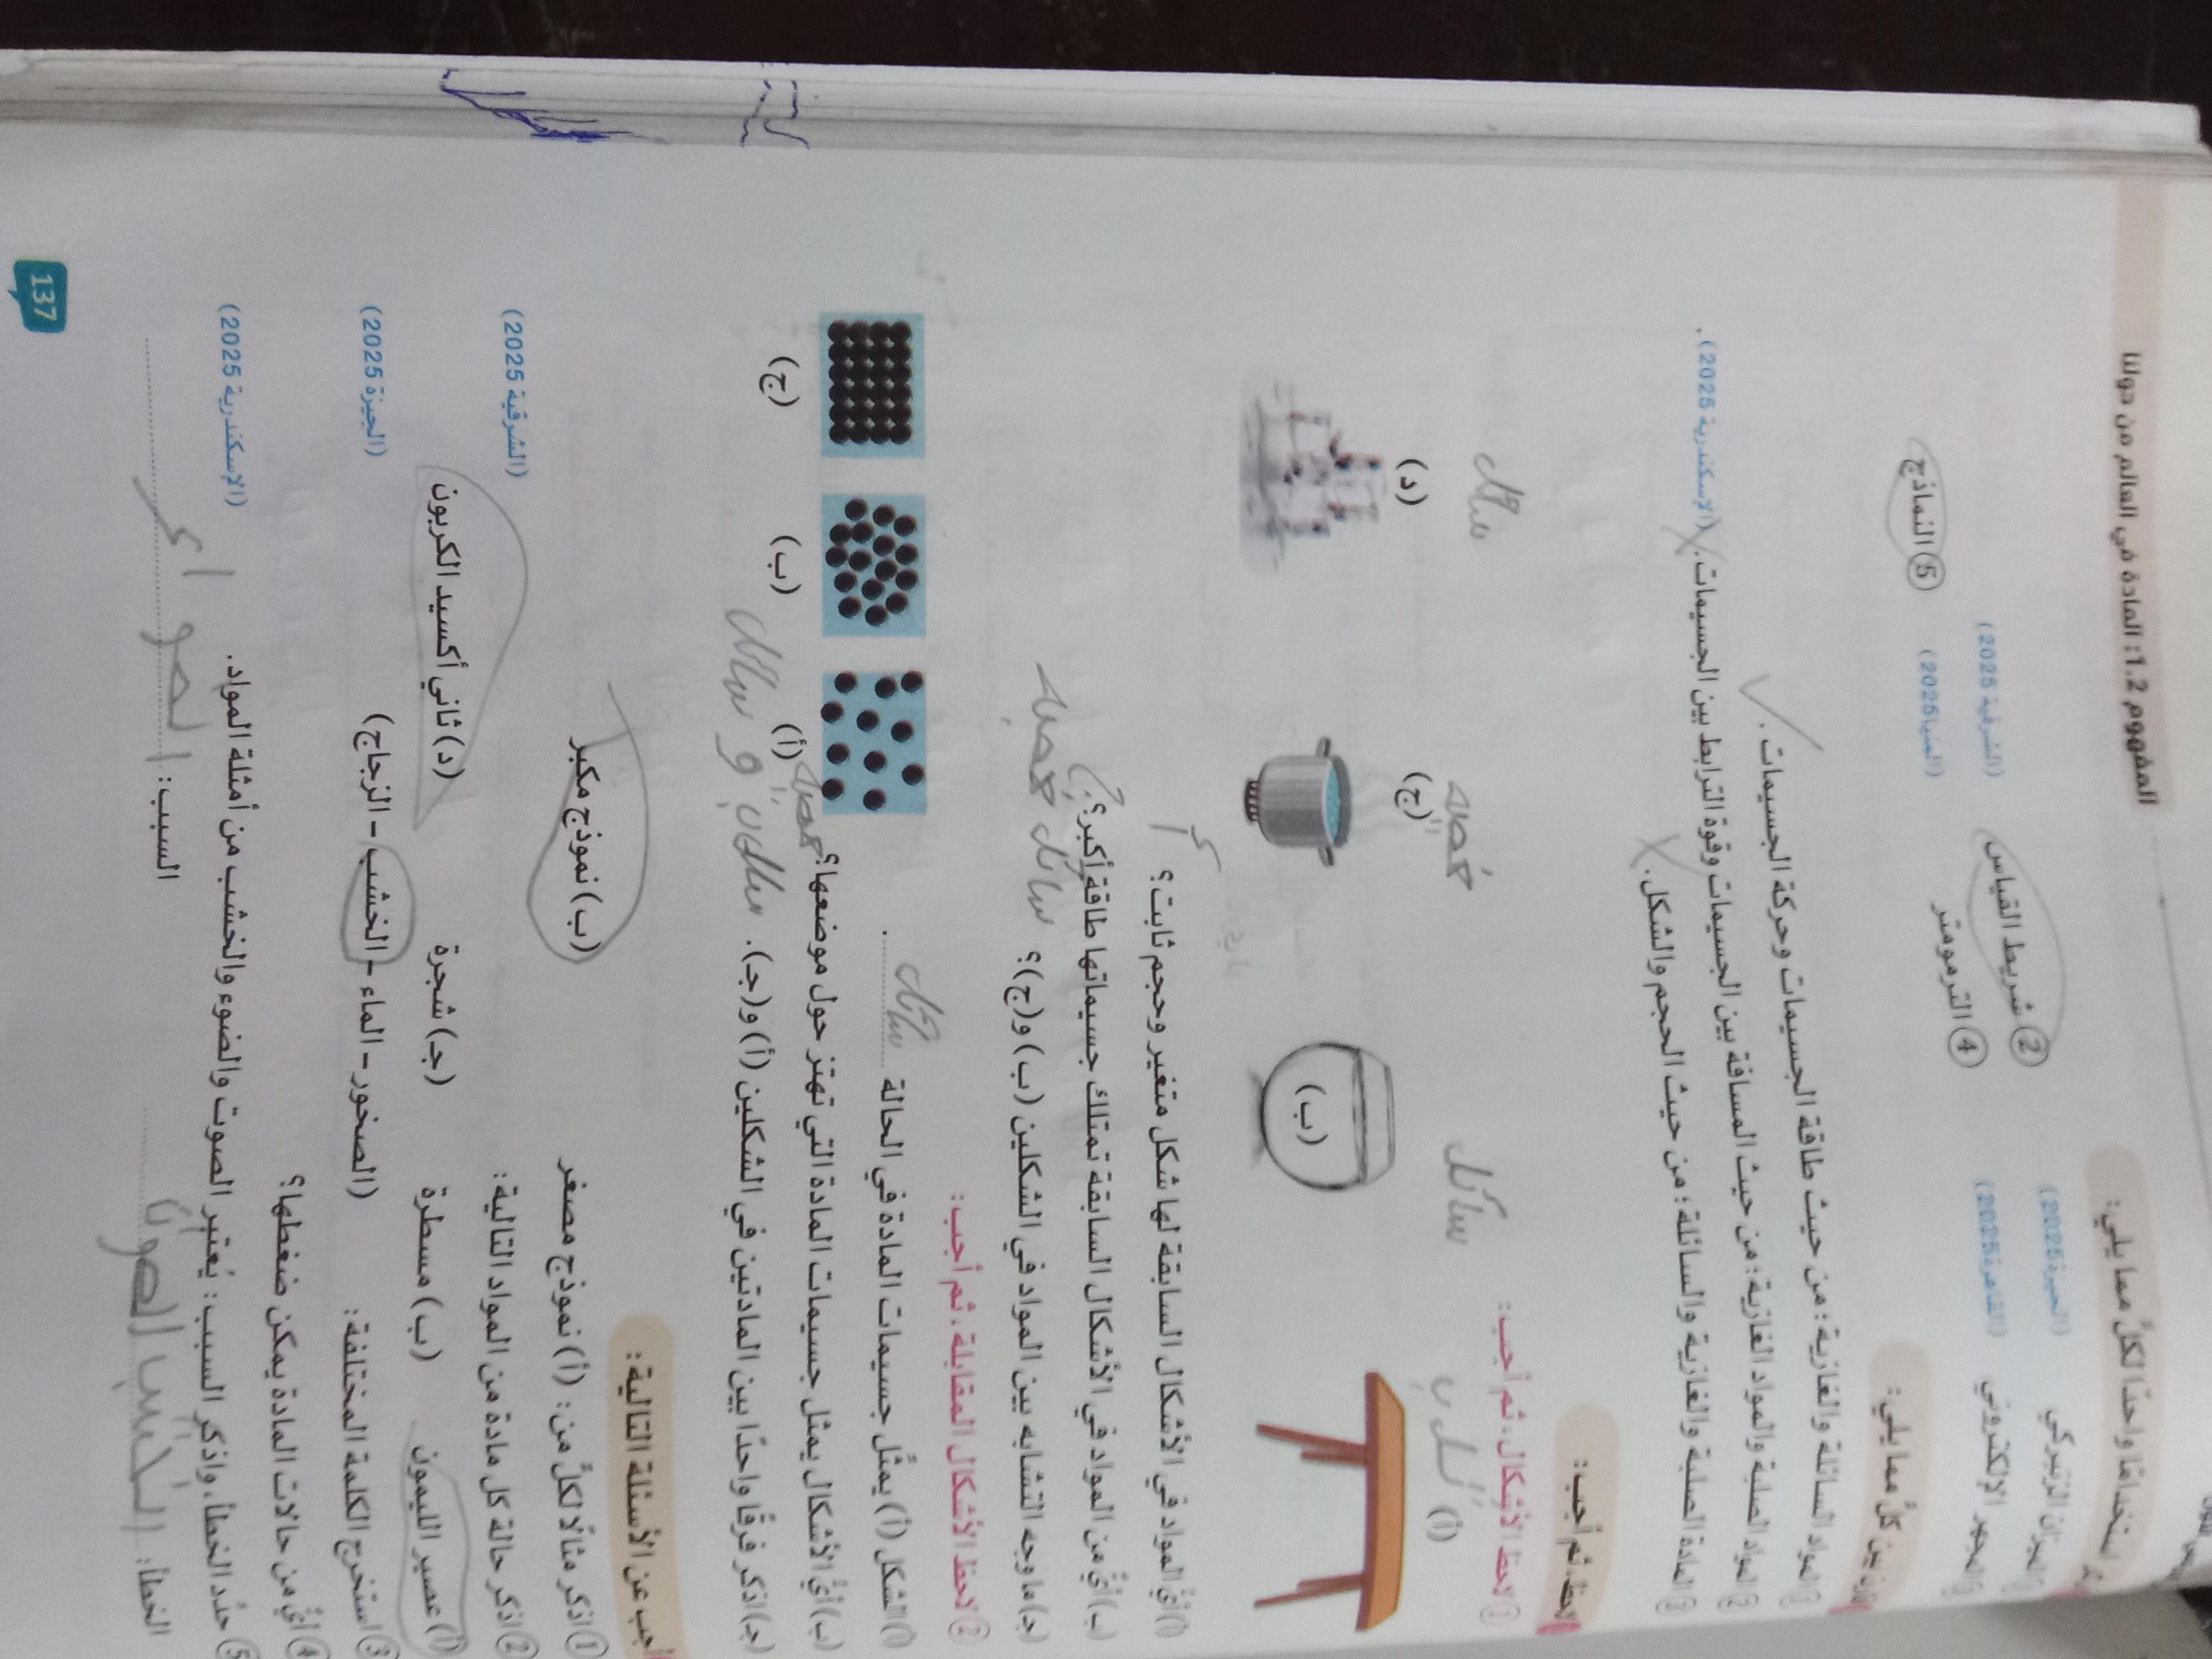 المفهوم 1.2: المادة في العالم من حولنا
استخدامًا واحدًا لكلٍّ مما يلي:
الميزان الزنبركي (الجيزة 2025)
② شريط القياس (الشرقية 2025)
المجهر الإلكتروني (القاهرة 2025)
④ الترمومتر (المنيا 2025)
⑤ النماذج
قارن بين كلٍّ مما يلي:
① المواد السائلة والغازية: من حيث طاقة الجسيمات وحركة الجسيمات.
② المواد الصلبة والمواد الغازية: من حيث المسافة بين الجسيمات وقوة الترابط بين الجسيمات. (الإسكندرية 2025)
③ المادة الصلبة والغازية والسائلة: من حيث الحجم والشكل.
لاحظ، ثم أجب:
① لاحظ الأشكال، ثم أجب:
سائل
سائل
(أ)
(ب)
(ج)
(د)
(أ) أيُّ المواد في الأشكال السابقة لها شكل متغير وحجم ثابت؟
(ب) أيٌّ من المواد في الأشكال السابقة تمتلك جسيماتها طاقة أكبر؟
(جـ) ما وجه التشابه بين المواد في الشكلين (ب) و(ج)؟ سائل
② لاحظ الأشكال المقابلة، ثم أجب:
(أ) الشكل (أ) يمثل جسيمات المادة في الحالة سائل
(ب) أيُّ الأشكال يمثل جسيمات المادة التي تهتز حول موضعها؟
(جـ) اذكر فرقًا واحدًا بين المادتين في الشكلين (أ) و(جـ).
(أ)
(ب)
(ج)
أجب عن الأسئلة التالية:
① اذكر مثالًا لكلٍّ من: (أ) نموذج مصغر (ب) نموذج مكبر
② اذكر حالة كل مادة من المواد التالية: (الشرقية 2025)
(أ) عصير الليمون (ب) مسطرة (جـ) شجرة (د) ثاني أكسيد الكربون
③ استخرج الكلمة المختلفة: (الصخور - الماء - الخشب - الزجاج) (الجيزة 2025)
④ أيٌّ من حالات المادة يمكن ضغطها؟
⑤ حدِّد الخطأ، واذكر السبب: يُعتبر الصوت والضوء والخشب من أمثلة المواد. (الإسكندرية 2025)
الخطأ: السبب:
137